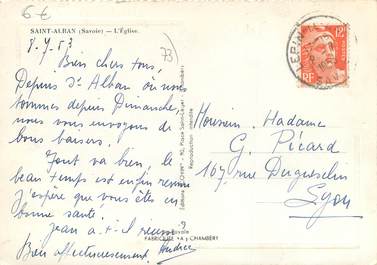 6€
SAINT-ALBAN (Savoie) — L'Église.
8.7.53
73
Bien chers tous,
Depuis St Alban où nous
sommes depuis Dimanche,
nous vous envoyons de
bons baisers.
Tout va bien, le
beau temps est enfin revenu
J'espère que vous êtes en
bonne santé.
Jean a-t-il réussi?
Bien affectueusement
Monsieur, Madame
G. Picard
167, rue Duguesclin
Lyon
12F
RF
Reproduction interdite
CHAMBÉRY